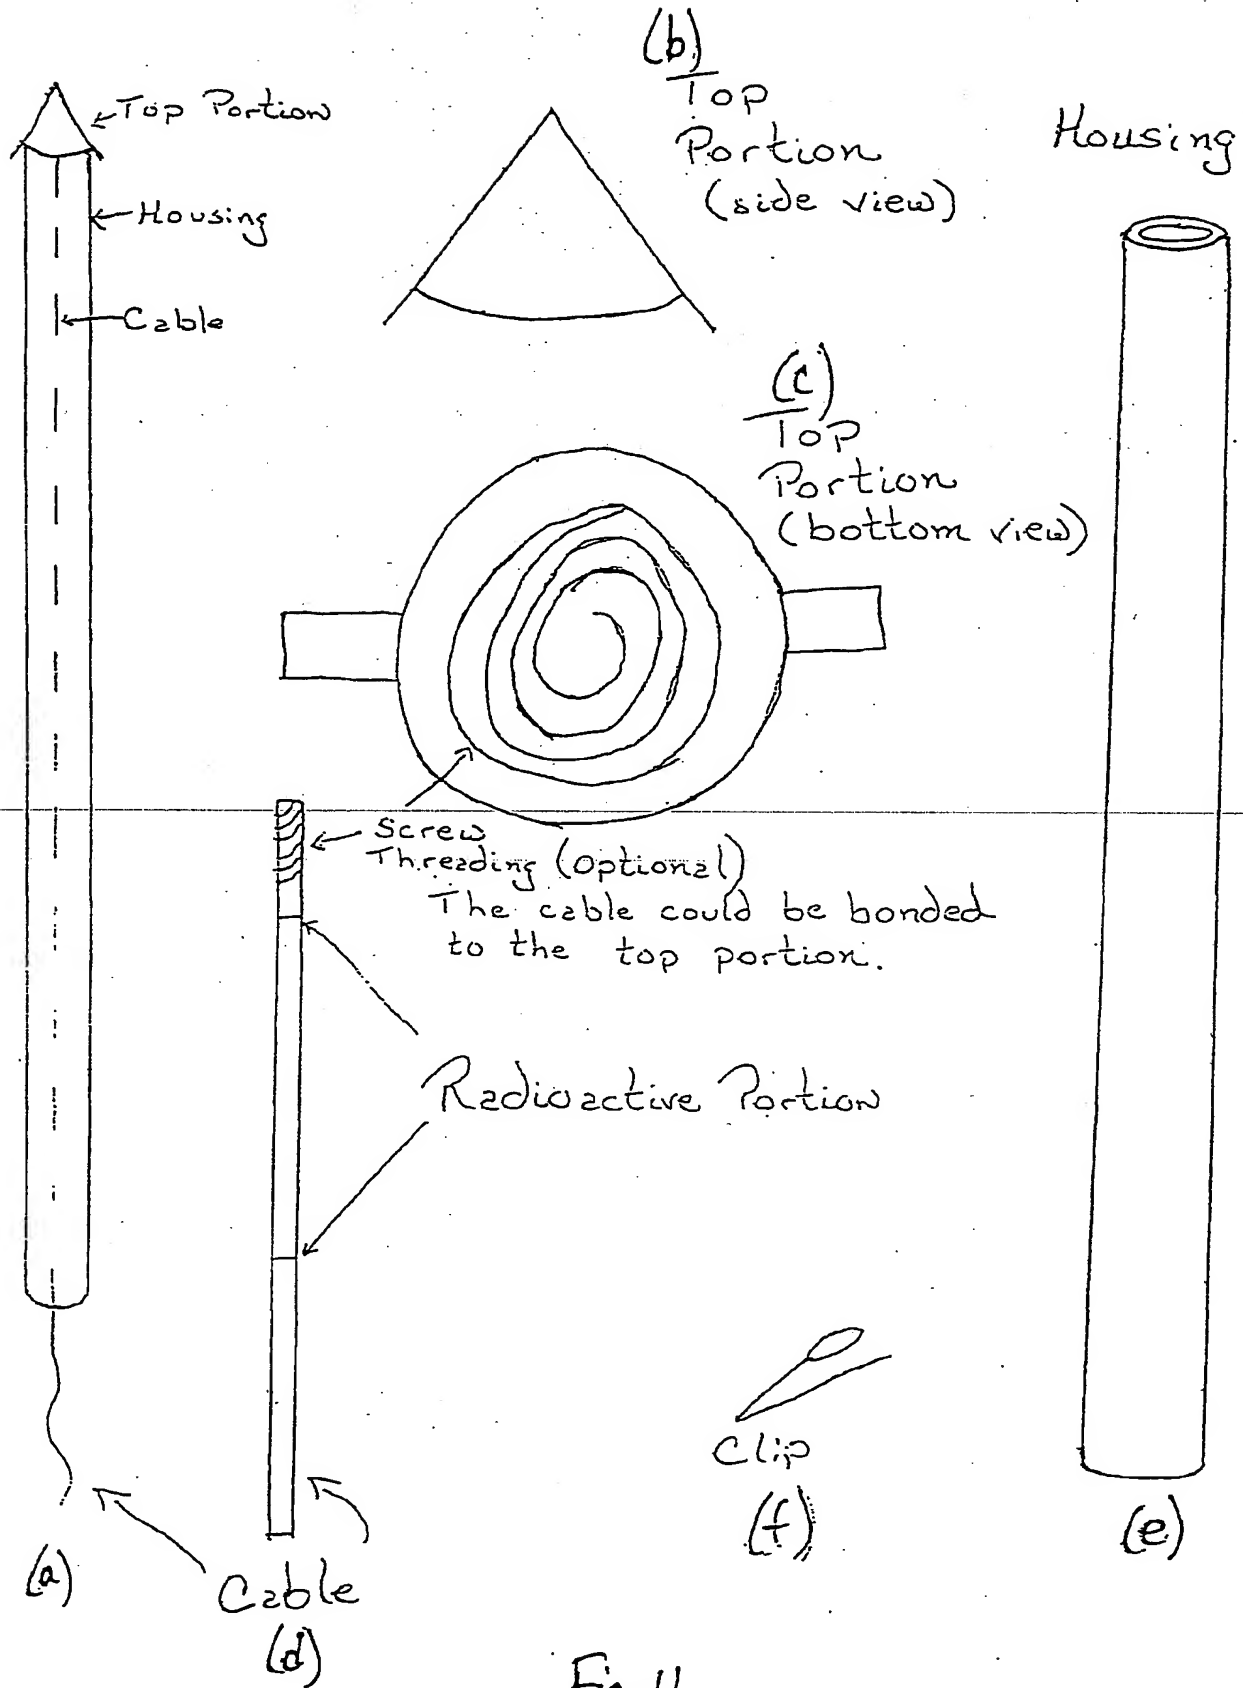 Top Portion
Housing
Cable
(b)
Top
Portion
(side view)
Housing
(c)
Top
Portion
(bottom view)
Screw
Threading (optional)
The cable could be bonded
to the top portion.
Radioactive Portion
Clip
(f)
(e)
(a)
Cable
(d)